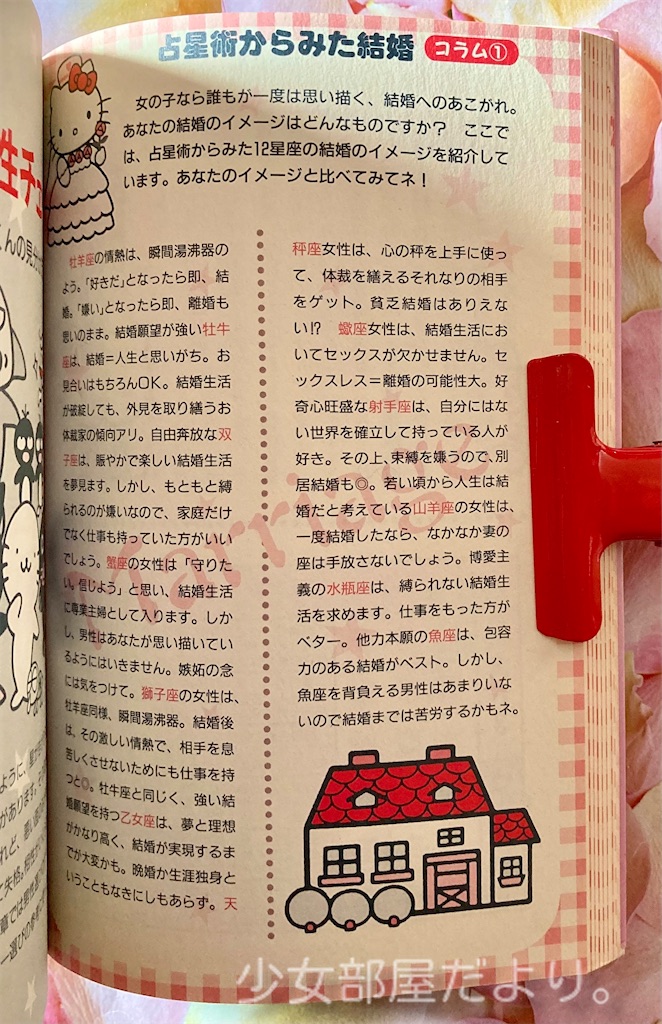 占星術からみた結婚 コラム①
女の子なら誰もが一度は思い描く、結婚へのあこがれ。
あなたの結婚のイメージはどんなものですか? ここで
は、占星術からみた12星座の結婚のイメージを紹介して
います。あなたのイメージと比べてみてネ!
牡羊座の情熱は、瞬間湯沸器の
よう。「好きだ」となったら即、結
婚。「嫌い」となったら即、離婚も
思いのまま。結婚願望が強い牡牛
座は、結婚=人生と思いがち。お
見合いはもちろんOK。結婚生活
が破綻しても、外見を取り繕うお
体裁家の傾向アリ。自由奔放な双
子座は、賑やかで楽しい結婚生活
を夢見ます。しかし、もともと縛
られるのが嫌いなので、家庭だけ
でなく仕事も持っていた方がいい
でしょう。蟹座の女性は「守りた
い。信じよう」と思い、結婚生活
に専業主婦として入ります。しか
し、男性はあなたが思い描いてい
るようにはいきません。嫉妬の念
には気をつけて。獅子座の女性は、
牡羊座同様、瞬間湯沸器。結婚後
は、その激しい情熱で、相手を息
苦しくさせないためにも仕事を持
つと◎。牡牛座と同じく、強い結
婚願望を持つ乙女座は、夢と理想
がかなり高く、結婚が実現するま
でが大変かも。晩婚か生涯独身と
いうこともなきにしもあらず。天
秤座女性は、心の秤を上手に使っ
て、体裁を繕えるそれなりの相手
をゲット。貧乏結婚はありえな
い!? 蠍座女性は、結婚生活にお
いてセックスが欠かせません。セ
ックスレス=離婚の可能性大。好
奇心旺盛な射手座は、自分にはな
い世界を確立して持っている人が
好き。その上、束縛を嫌うので、別
居結婚も◎。若い頃から人生は結
婚だと考えている山羊座の女性は、
一度結婚したなら、なかなか妻の
座は手放さないでしょう。博愛主
義の水瓶座は、縛られない結婚生
活を求めます。仕事をもった方が
ベター。他力本願の魚座は、包容
力のある結婚がベスト。しかし、
魚座を背負える男性はあまりいな
いので結婚までは苦労するかもネ。
Marriage
少女部屋だより。